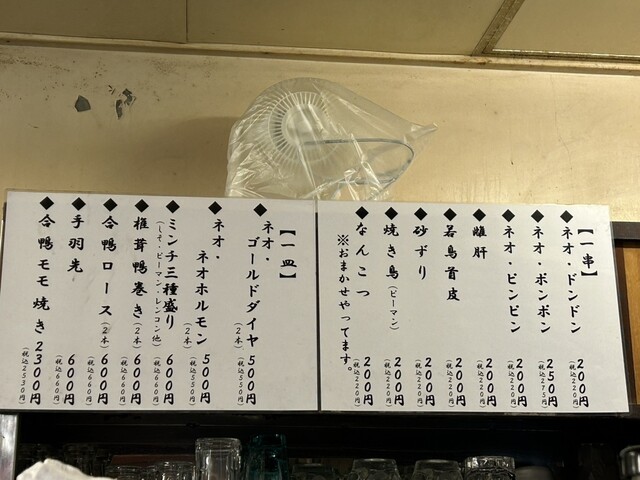 【一串】
◆ネオ・ドンドン 200円
(税込220円)
◆ネオ・ボンボン 250円
(税込275円)
◆ネオ・ビンビン 200円
(税込220円)
◆雛肝 200円
(税込220円)
◆若鳥首皮 200円
(税込220円)
◆砂ずり 200円
(税込220円)
◆焼き鳥(ピーマン) 200円
(税込220円)
◆なんこつ 200円
(税込220円)
※おまかせやってます。
【一皿】
◆ネオ・
ゴールドダイヤ 500円
(2本) (税込550円)
◆ネオ・
ネオホルモン 500円
(2本) (税込550円)
◆ミンチ三種盛り 600円
(しそ・ピーマン・レンコン他) (税込660円)
◆椎茸鴨巻き(2本) 600円
(税込660円)
◆合鴨ロース(2本) 600円
(税込660円)
◆手羽先 600円
(税込660円)
◆合鴨モモ焼き 2300円
(税込2530円)